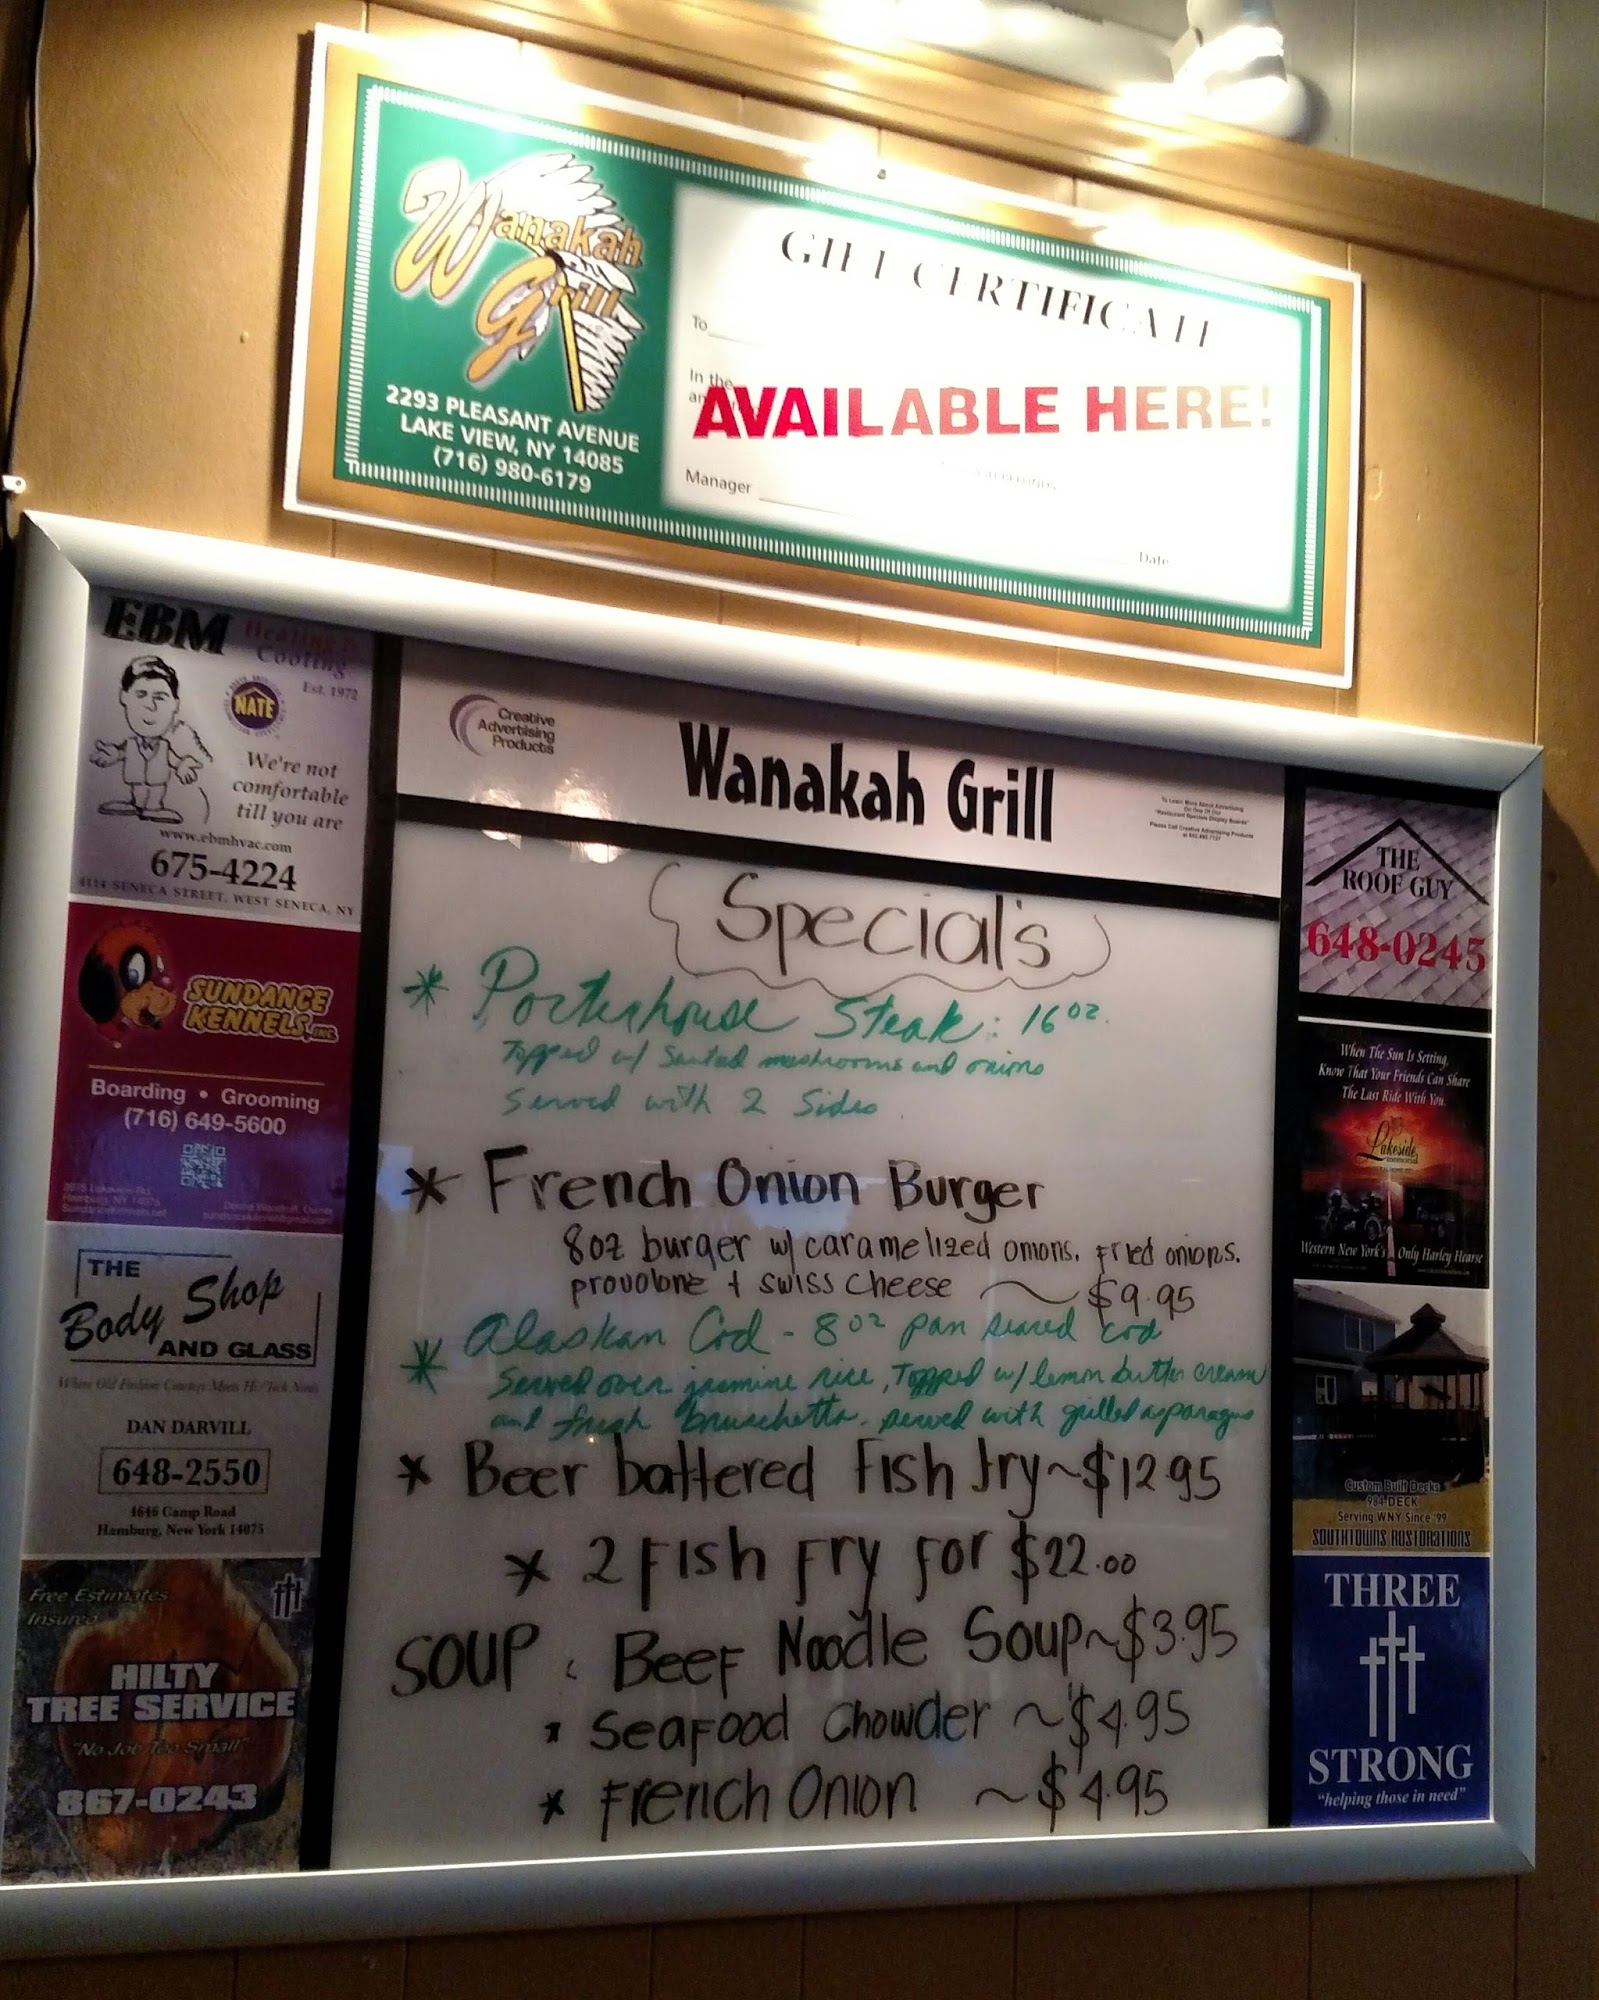 Wanakah
Grill
2293 PLEASANT AVENUE
LAKE VIEW, NY 14085
(716) 980-6179
GIFT CERTIFICATE
To
In the
AVAILABLE HERE!
Manager
Date
EBM
Heating &
Cooling
Est. 1972
NATE
We're not
comfortable
till you are
www.ebmhvac.com
675-4224
4114 SENECA STREET, WEST SENECA, NY
SUNDANCE
KENNELS, INC.
Boarding • Grooming
(716) 649-5600
THE
Body Shop
AND GLASS
Where Old Fashion Courtesy Meets Hi-Tech Needs
DAN DARVILL
648-2550
4646 Camp Road
Hamburg, New York 14075
Free Estimates
Insured
HILTY
TREE SERVICE
"No Job Too Small"
867-0243
Creative
Advertising
Products
Wanakah Grill
To Learn More About Advertising
On One Of Our
"Restaurant Specials Display Boards"
Please Call Creative Advertising Products
Special's
* Porterhouse Steak: 16 oz.
Topped w/ Sauted mushrooms and onions
Served with 2 Sides.
* French Onion Burger
8oz burger w/ caramelized onions, fried onions,
provolone + swiss cheese ~ $9.95
* Alaskan Cod - 8 oz pan seared cod
Served over jasmine rice, Topped w/ lemon butter cream
and fresh bruschetta. served with grilled asparagus
* Beer battered Fish fry ~ $12.95
* 2 Fish Fry For $22.00
SOUP : Beef Noodle Soup ~ $3.95
* Seafood Chowder ~ $4.95
* French Onion ~ $4.95
THE
ROOF GUY
648-0245
When The Sun Is Setting,
Know That Your Friends Can Share
The Last Ride With You.
Lakeside
memorial
Western New York's Only Harley Hearse
Custom Built Decks
984-DECK
Serving WNY Since '99
SOUTHTOWNS RESTORATIONS
THREE
STRONG
"helping those in need"